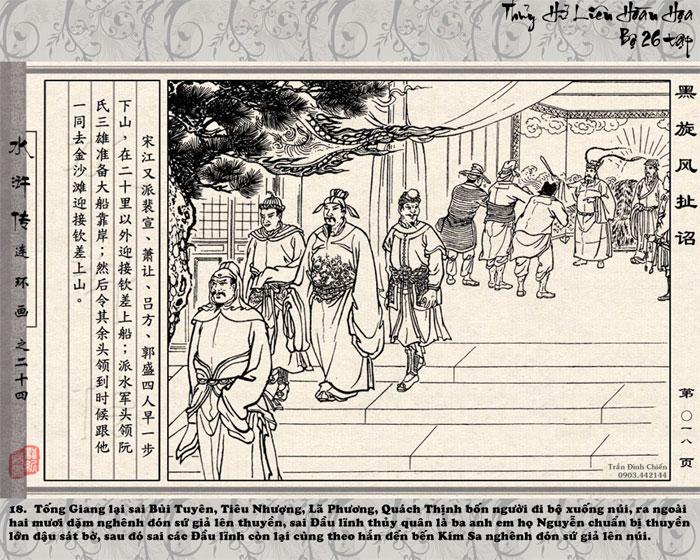 Thủy Hử Liên Hoàn Họa
Bộ 26 tập
黑旋风扯诏
第〇一八页
宋江又派裴宣、萧让、吕方、郭盛四人早一步
下山，在二十里以外迎接钦差上船；派水军头领阮
氏三雄准备大船靠岸；然后令其余头领到时候跟他
一同去金沙滩迎接钦差上山。
水浒传连环画之二十四
Trần Đình Chiến
0903.442144
18. Tống Giang lại sai Bùi Tuyên, Tiêu Nhượng, Lã Phương, Quách Thịnh bốn người đi bộ xuống núi, ra ngoài
hai mươi dặm nghênh đón sứ giả lên thuyền, sai Đầu lĩnh thủy quân là ba anh em họ Nguyễn chuẩn bị thuyền
lớn đậu sát bờ, sau đó sai các Đầu lĩnh còn lại cùng theo hắn đến bến Kim Sa nghênh đón sứ giả lên núi.